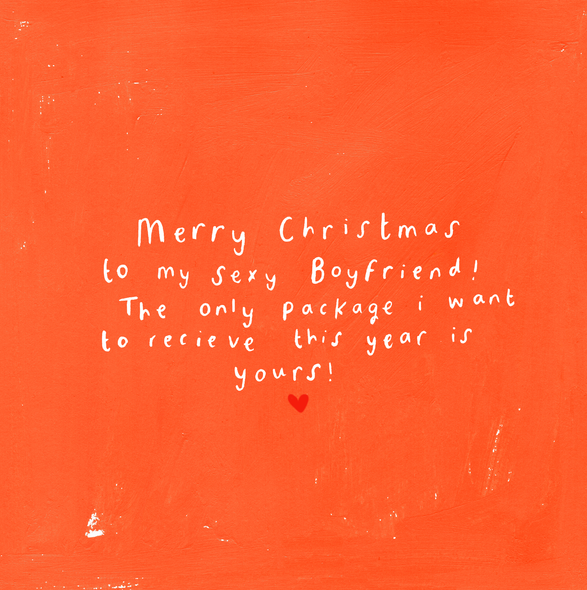 Merry Christmas
to my sexy Boyfriend!
The only package i want
to recieve this year is
yours!